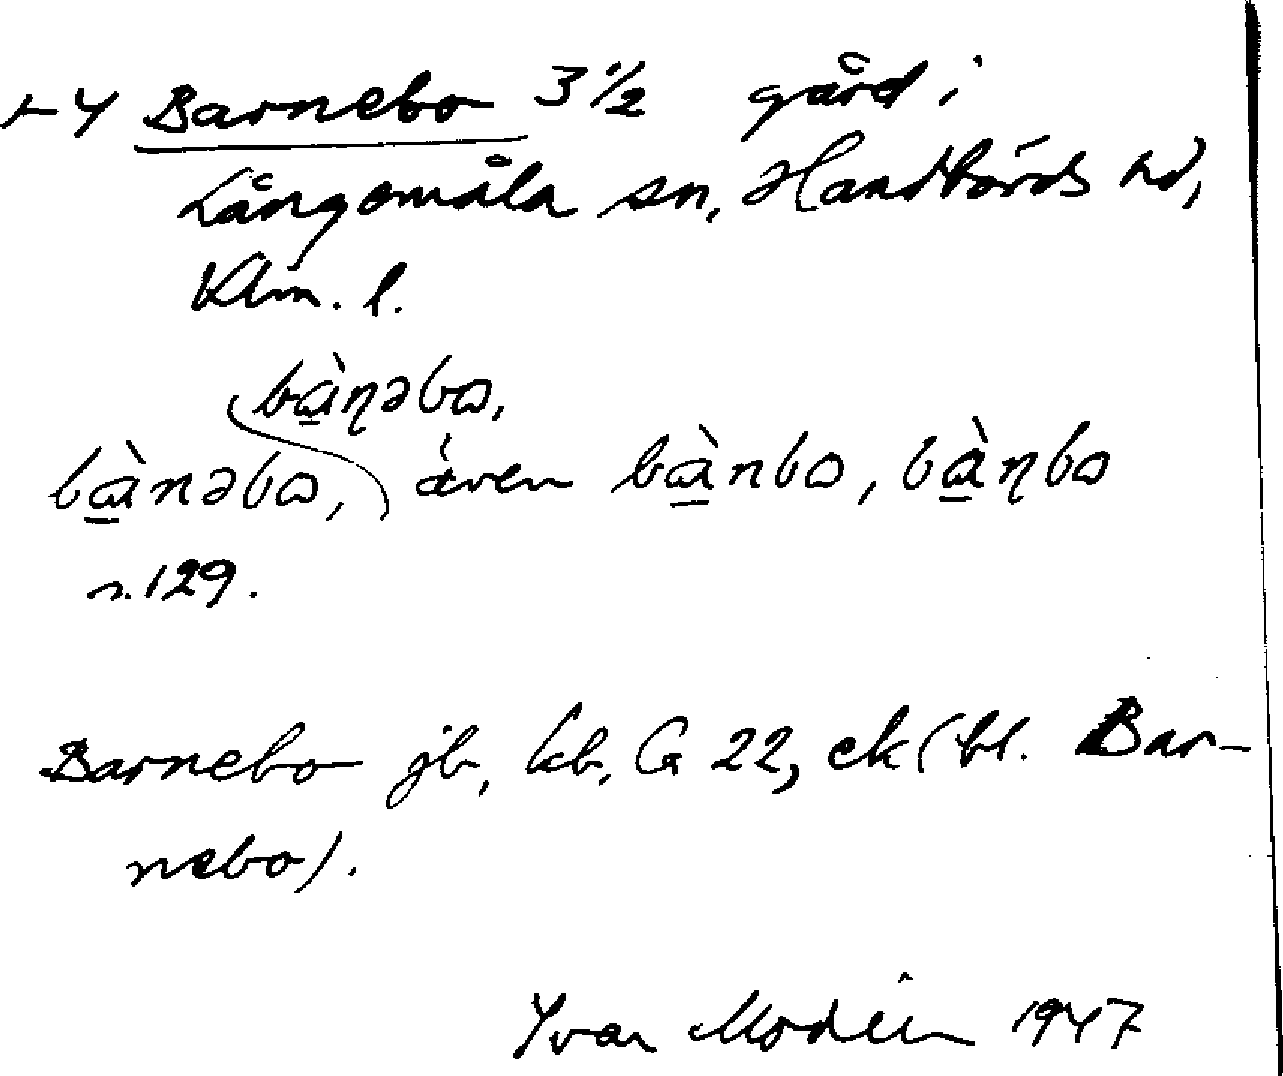 +4 Barnebo 3 1/2 gård i
Långemåla sn, Handbörds hd,
Klm. l.
bɑ̀ɳəbɷ,
bɑ̀nəbɷ, även bɑ̀nbɷ, bɑ̀ɳbɷ
n. 129.
Barnebo jb, kb, G 22, ek (bl. Bar-
nebo).
Yvar Modéer 1947